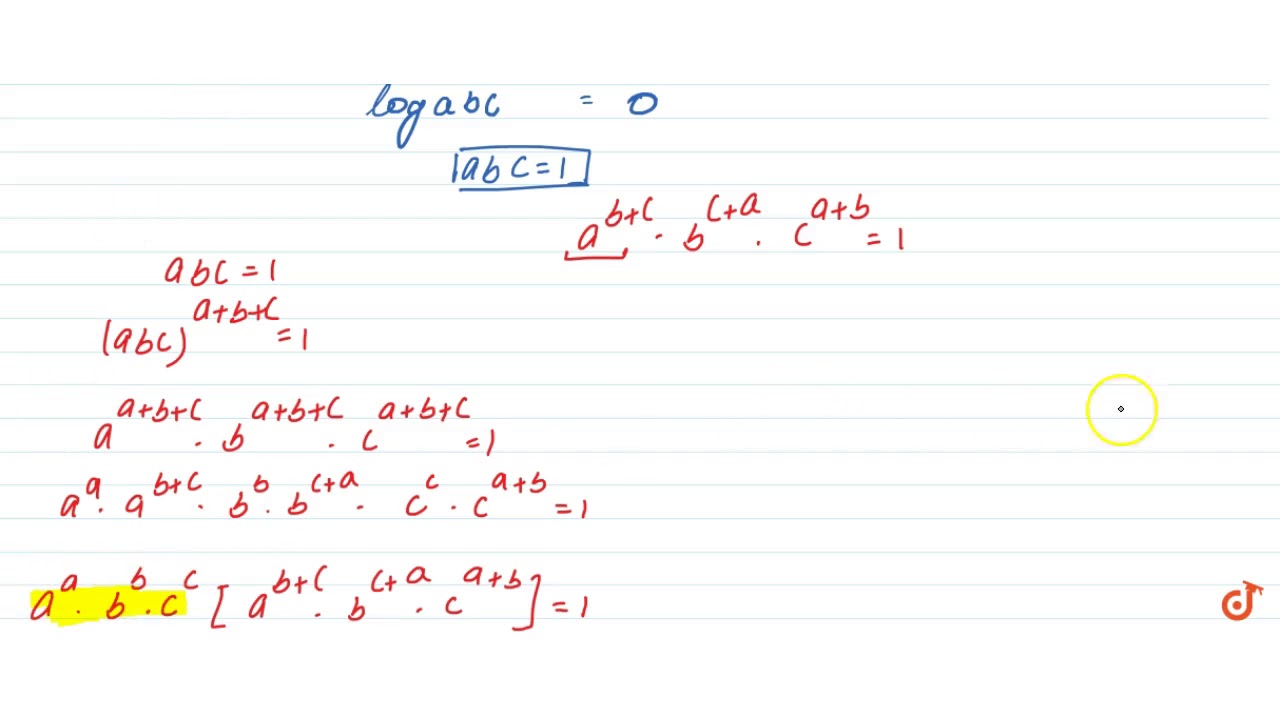 log abc = 0
abc = 1
a^{b+c} · b^{c+a} · c^{a+b} = 1
abc = 1
(abc)^{a+b+c} = 1
a^{a+b+c} · b^{a+b+c} · c^{a+b+c} = 1
a^a · a^{b+c} · b^b · b^{c+a} · c^c · c^{a+b} = 1
a^a · b^b · c^c [a^{b+c} · b^{c+a} · c^{a+b}] = 1